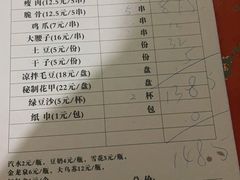 瘦 肉(12.5元/5串) 5 串
脆 骨(12.5元/5串) 5 串
鸡 爪(7元/串) 串
大腰子(16元/串) 串
土 豆(5元/份) 份
干 子(5元/份) 份
凉拌毛豆(18元/盘) 盘
秘制花甲(22元/盘) 盘
绿豆沙(5元/杯) 2 杯
纸 巾(1元/包) 包
148
汽水2元/瓶、豆奶4元/瓶、雪花5元/瓶、
金龙泉6元/瓶、大乌苏12元/瓶、